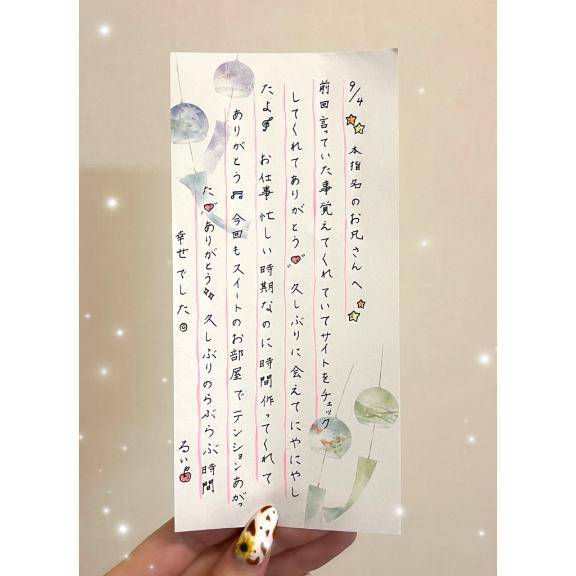 9/4 本指名のお兄さんへ
前回言っていた事覚えてくれていてサイトをチェック
してくれてありがとう 久しぶりに会えてにやにやし
たよ お仕事忙しい時期なのに時間作ってくれて
ありがとう♬ 今回もスイートのお部屋でテンションあがっ
た ありがとう 久しぶりのらぶらぶ時間
幸せでした
るい